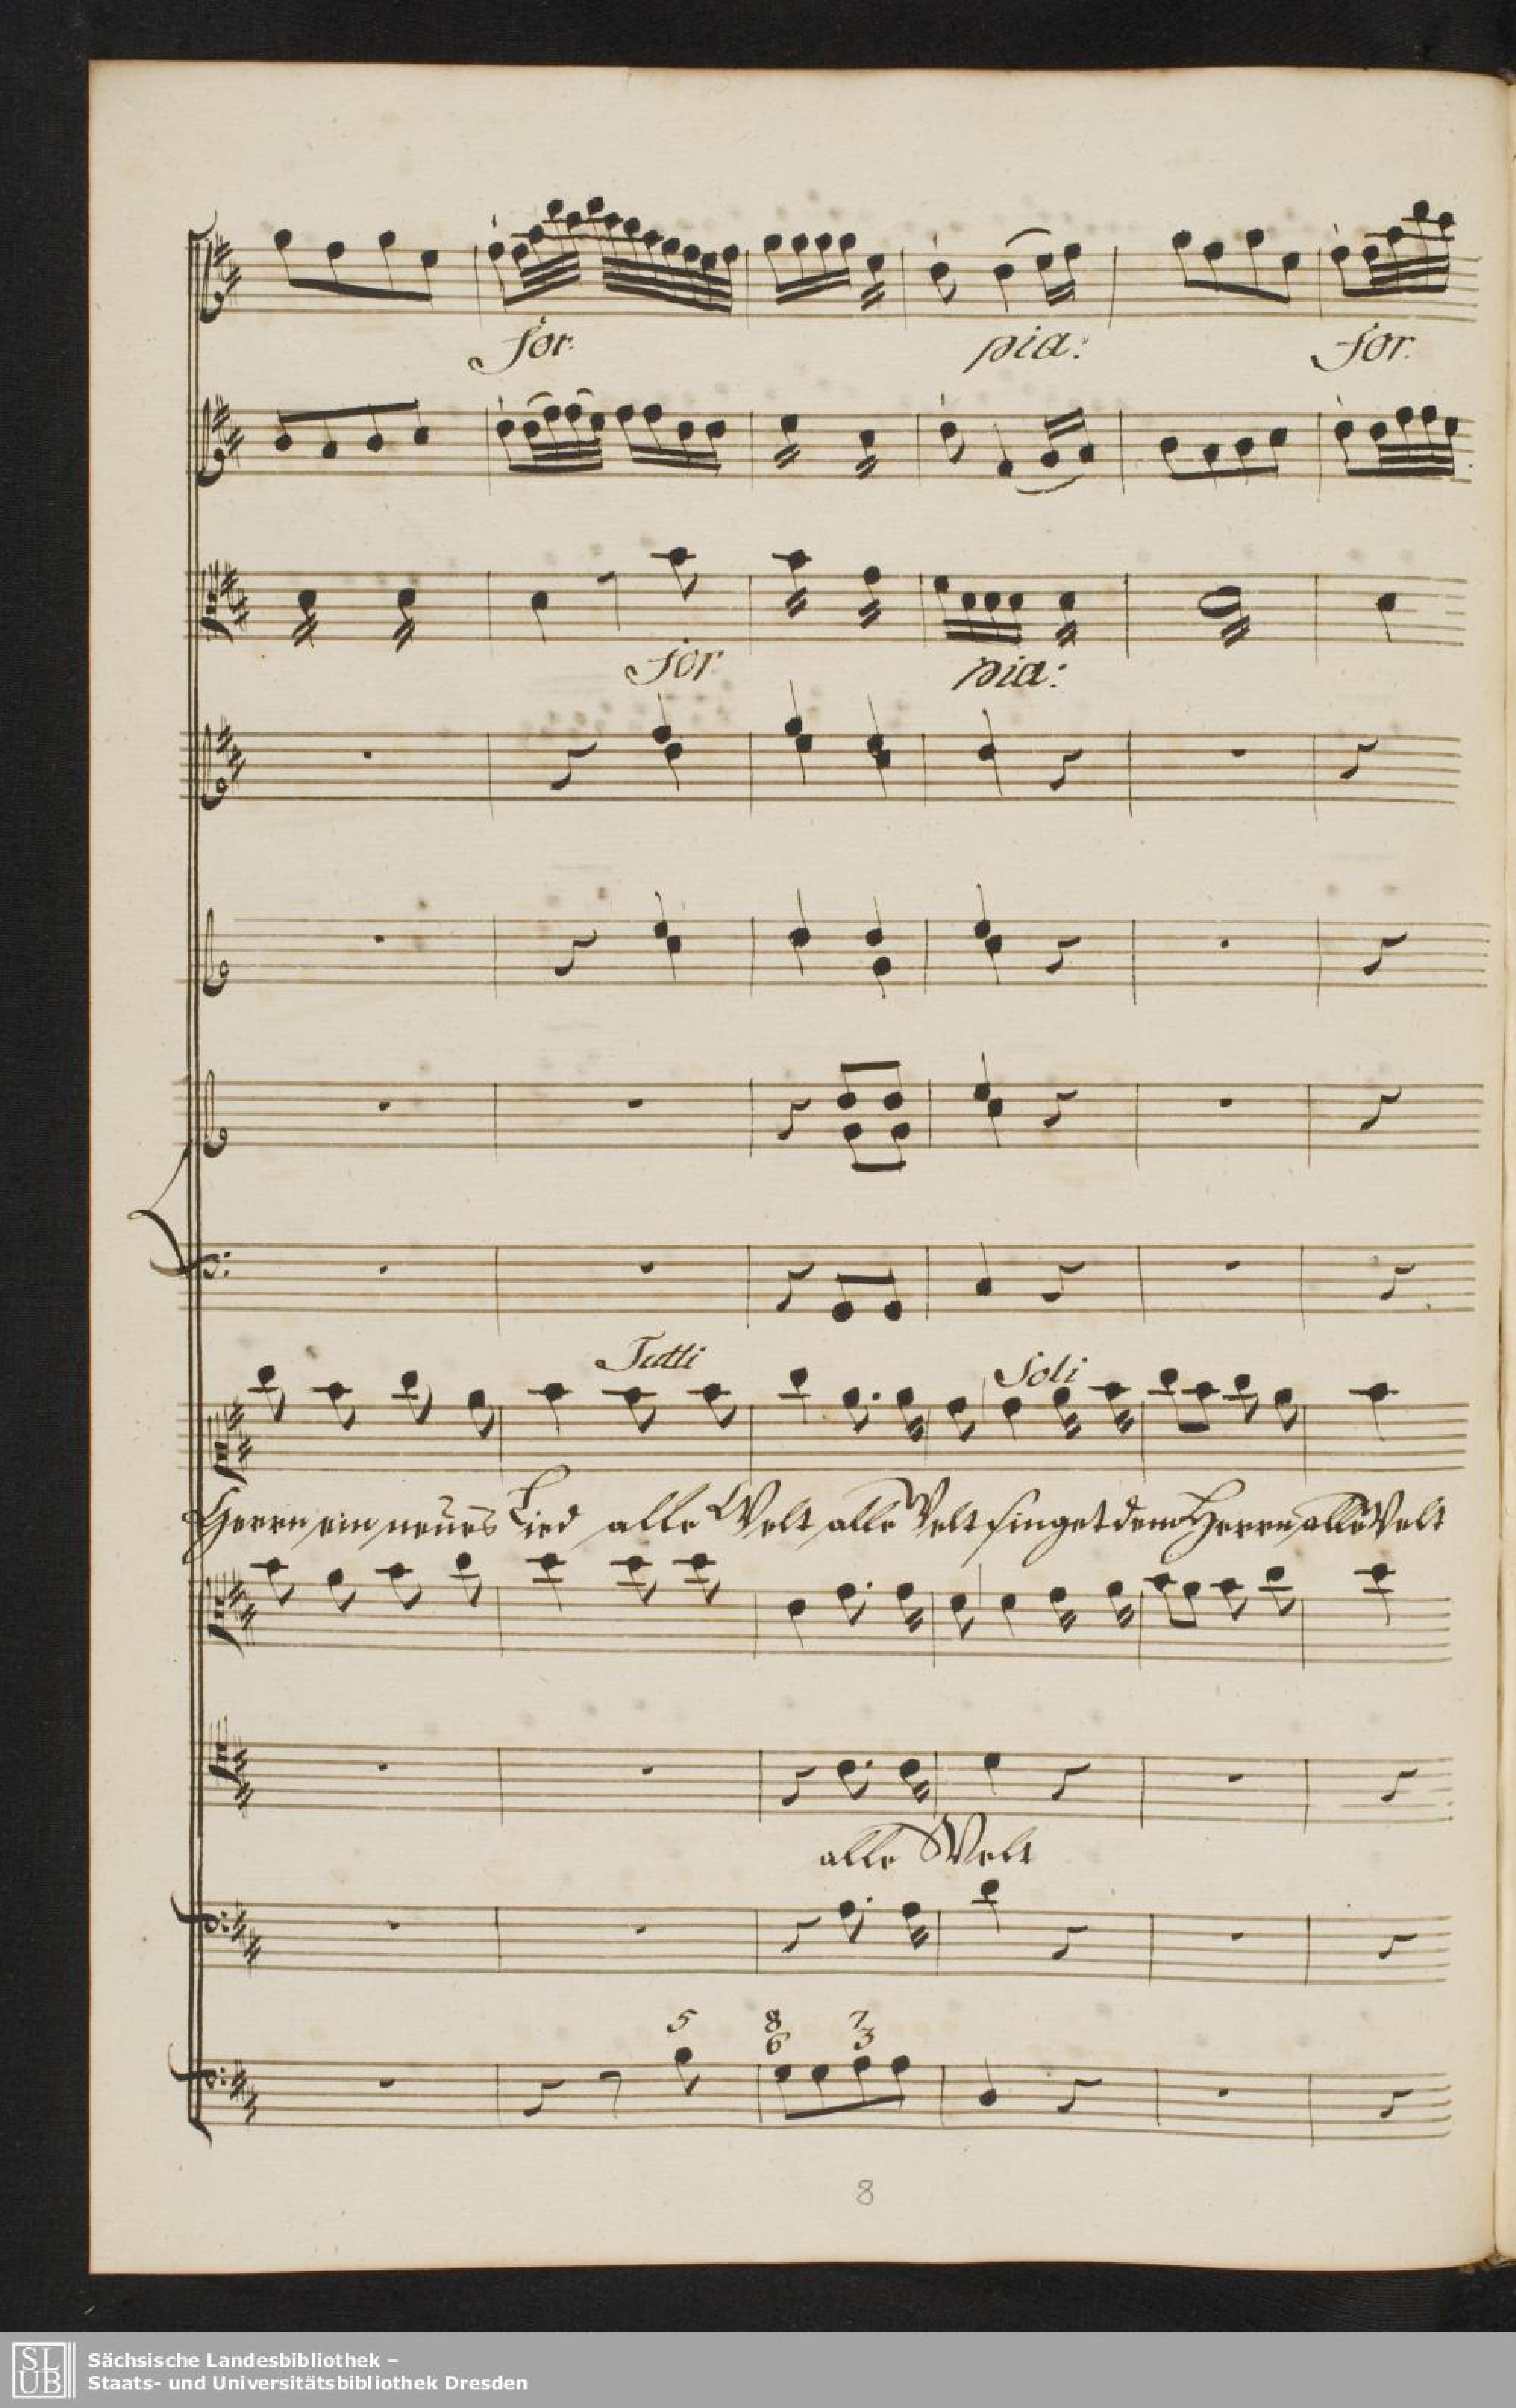 for.
pia:
for.
for
pia:
Tutti
Soli
Herrn ein neues Lied alle Welt alle Welt singet dem Herrn alle Welt
alle Welt
5 8 7
6 3
8
SLUB
Sächsische Landesbibliothek –
Staats- und Universitätsbibliothek Dresden